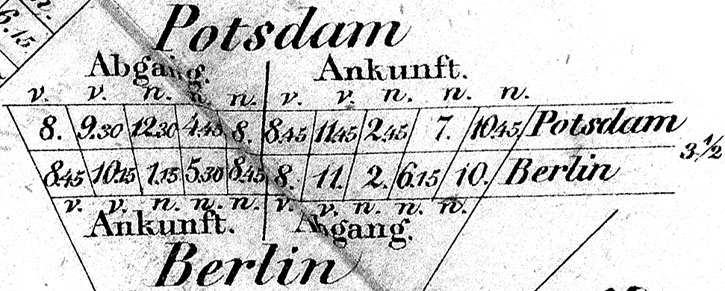 n.
6.15
Potsdam
Abgang. Ankunft.
v. v. n. n. n. v. v. n. n. n.
8. 9.30 12.30 4.45 8. 8.45 11.45 2.45 7. 10.45 Potsdam
3.½
8.45 10.15 1.15 5.30 8.45 8. 11. 2. 6.15 10. Berlin
v. v. n. n. n. v. v. n. n. n.
Ankunft. Abgang.
Berlin